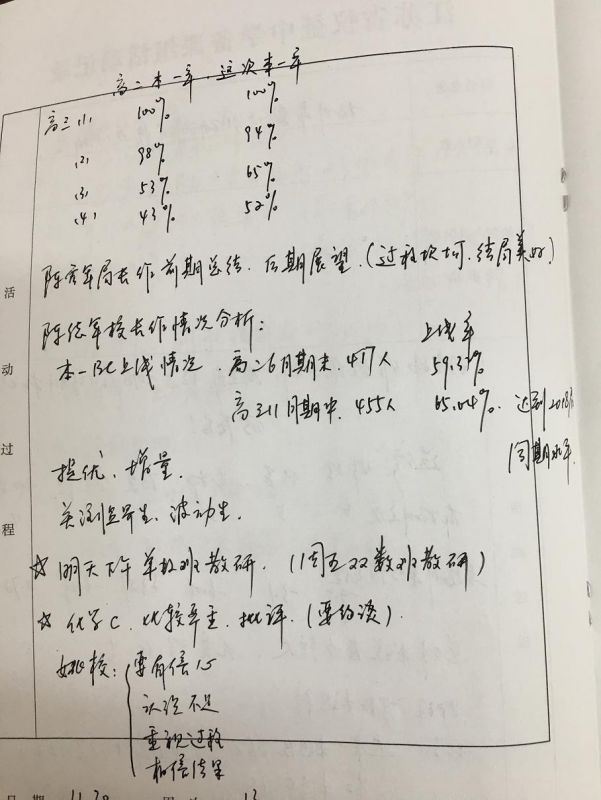 高二本一率,这次本一率
高三(1) 100% 100%
(2) 98% 94%
(3) 53% 65%
(4) 43% 52%
局长作前期总结,后期展望.(过程坎坷.结局美好)
校长作情况分析:
上线率
本一BC上线情况.高二6月期末.417人 59.31%
高三11月期中.455人 65.04%.达到2018届
同期水平.
提优、增量.
关注临界生、波动生.
☆明天下午单数班教研.(周五双数班教研)
☆化学C.比较严重.批评.(要约谈).
校:要有信心
认识不足
重视过程
相信结果
活动过程
日期 11.20 周次 13